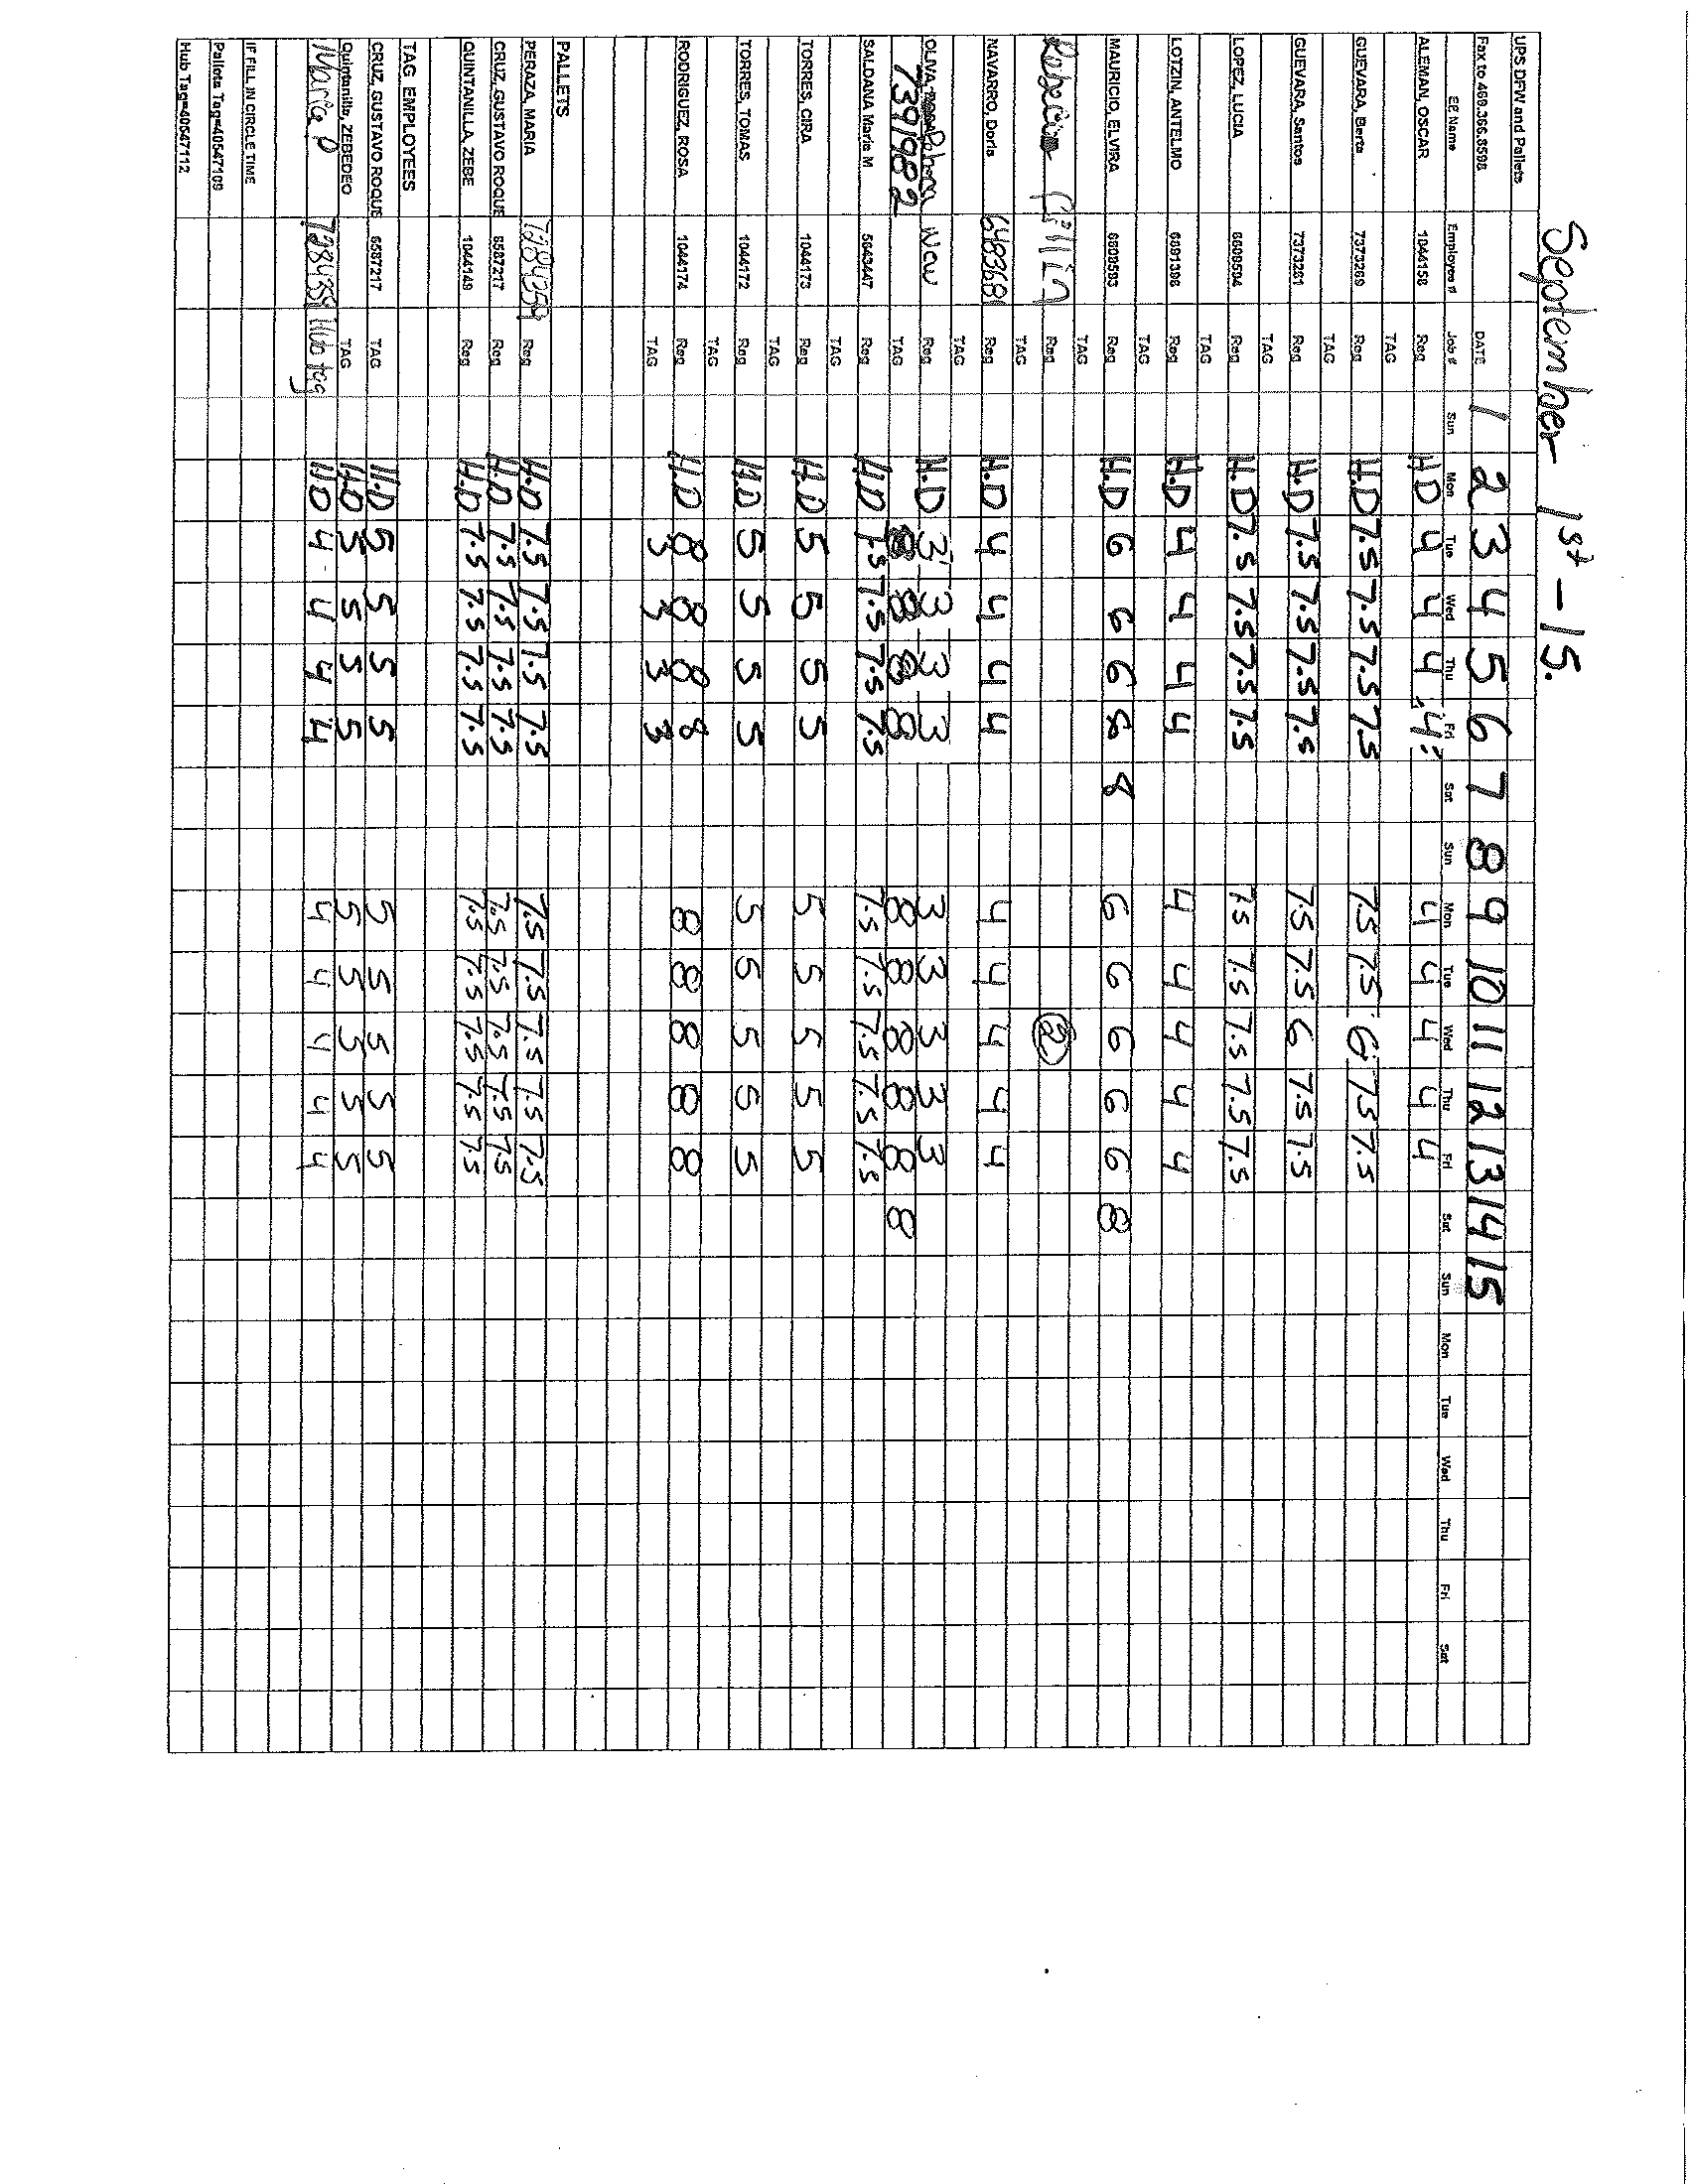 September 1st - 15.
UPS DFW and Pallets
Fax to 469.366.8598 DATE 1 2 3 4 5 6 7 8 9 10 11 12 13 14 15
EE Name Employee # Job # Sun Mon Tue Wed Thu Fri Sat Sun Mon Tue Wed Thu Fri Sat Sun Mon Tue Wed Thu Fri Sat
ALEMAN, OSCAR 1044158 Reg H.D 4 4 4 4 4 4 4 4 4
TAG
GUEVARA, Berta 7373269 Reg H.D 7.5 7.5 7.5 7.5 7.5 7.5 6 7.5 7.5
TAG
GUEVARA, Santos 7373281 Reg H.D 7.5 7.5 7.5 7.5 7.5 7.5 6 7.5 7.5
TAG
LOPEZ, LUCIA 6609594 Reg H.D 7.5 7.5 7.5 7.5 7.5 7.5 7.5 7.5 7.5
TAG
LOTZIN, ANTELMO 6691398 Reg H.D 4 4 4 4 4 4 4 4 4
TAG
MAURICIO, ELVIRA 6609593 Reg H.D 6 6 6 8 8 6 6 6 6 6 8
TAG
Reg 2
TAG
NAVARRO, Doris 6483681 Reg H.D 4 4 4 4 4 4 4 4 4
TAG
OLIVA, New Reg H.D 3 3 3 3 3 3 3 3 3
7391982 TAG 8 8 8 8 8 8 8 8 8 8
SALDANA Maria M 5643447 Reg H.D 7.5 7.5 7.5 7.5 7.5 7.5 7.5 7.5 7.5
TAG
TORRES, CIRA 1044173 Reg H.D 5 5 5 5 5 5 5 5 5
TAG
TORRES, TOMAS 1044172 Reg H.D 5 5 5 5 5 5 5 5 5
TAG
RODRIGUEZ, ROSA 1044174 Reg H.D 8 8 8 8 8 8 8 8 8
TAG 3 3 3 3
PALLETS
PERAZA, MARIA 7284359 Reg H.D 7.5 7.5 7.5 7.5 7.5 7.5 7.5 7.5 7.5
CRUZ, GUSTAVO ROQUE 6587217 Reg H.D 7.5 7.5 7.5 7.5 7.5 7.5 7.5 7.5 7.5
QUINTANILLA, ZEBE 1044149 Reg H.D 7.5 7.5 7.5 7.5 7.5 7.5 7.5 7.5 7.5
TAG EMPLOYEES
CRUZ, GUSTAVO ROQUE 6587217 TAG H.D 5 5 5 5 5 5 5 5 5
Quintanilla, ZEBEDEO TAG H.D 5 5 5 5 5 5 5 5 5
Maria P 7284359 Hub tag H.D 4 4 4 4 4 4 4 4 4
IF FILL IN CIRCLE TIME
Pallets Tag=40547109
Hub Tag=40547112